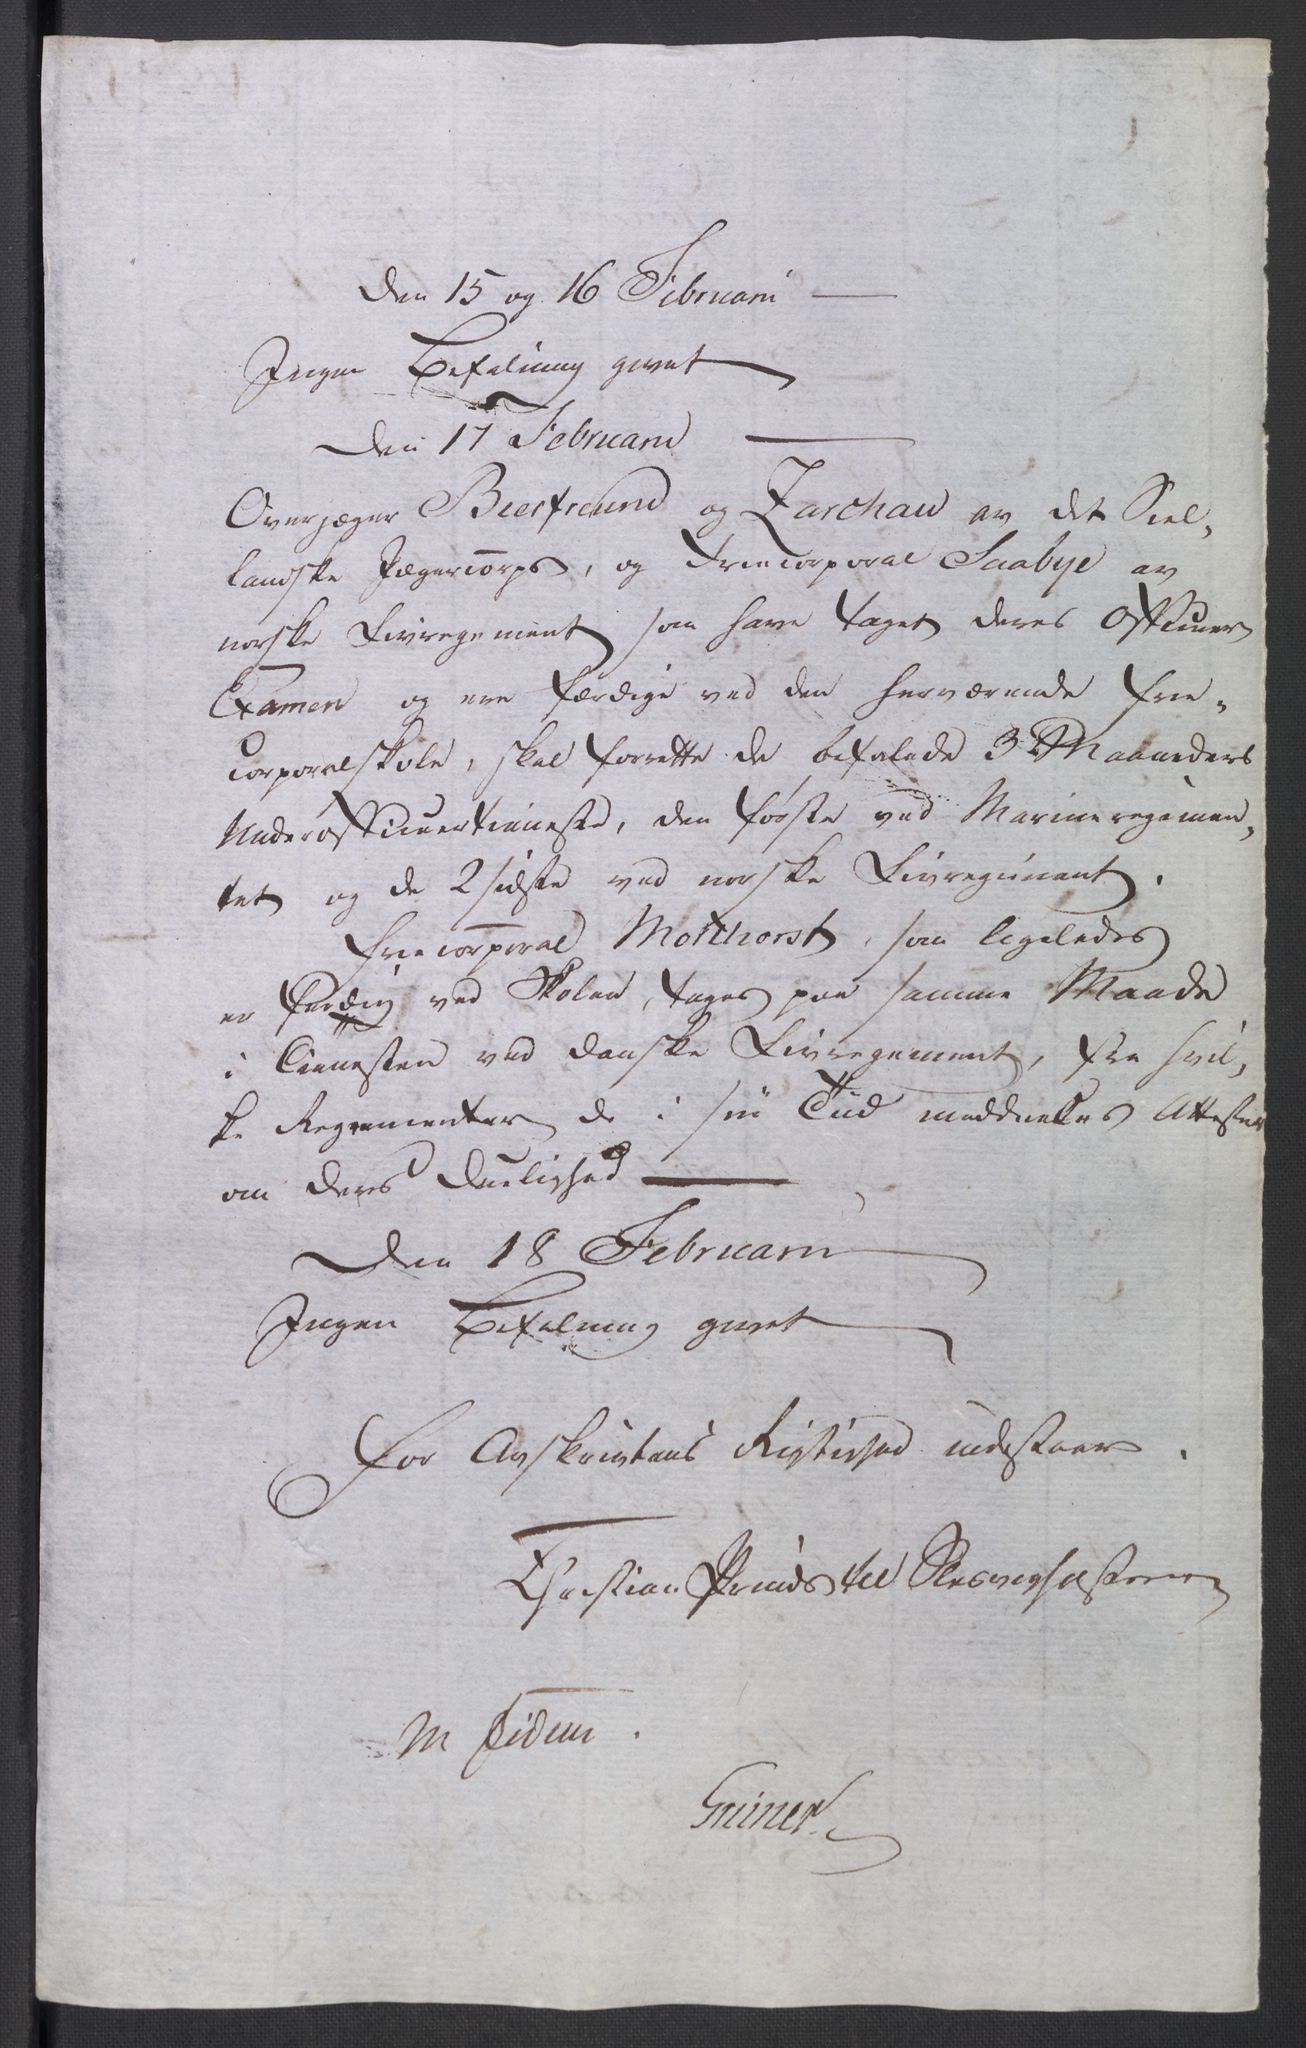 Den 15 og 16 Februarii
Ingen Befalning givet
Den 17 Februarii
Overjæger Bierfreund og Zarchau av det Siel-
landske Jægercorps, og Friecorporal Saabye av
norske Livregement som have taget deres Officeer
Examen og ere færdige ved den herværende Frie-
corporalskole, skal forrette de befalede 3 Maaneders
Underofficeertieneste, den første ved Marineregimen-
tet og de 2 sidste ved norske Livregiment.
Friecorporal Molthorst, som ligeledes
er færdig ved Skolen, tages paa samme Maade
i Tienesten ved danske Livregement, fra hvil-
ke Regimenter de i sin Tiid meddeeles Attester
om deres Duelighed
Den 18 Februarii
Ingen Befalning givet
For Avskrivtens Rigtighed indestaaer.
Christian Prinds til Slesvigholsteen
M Fidem.
Grüner